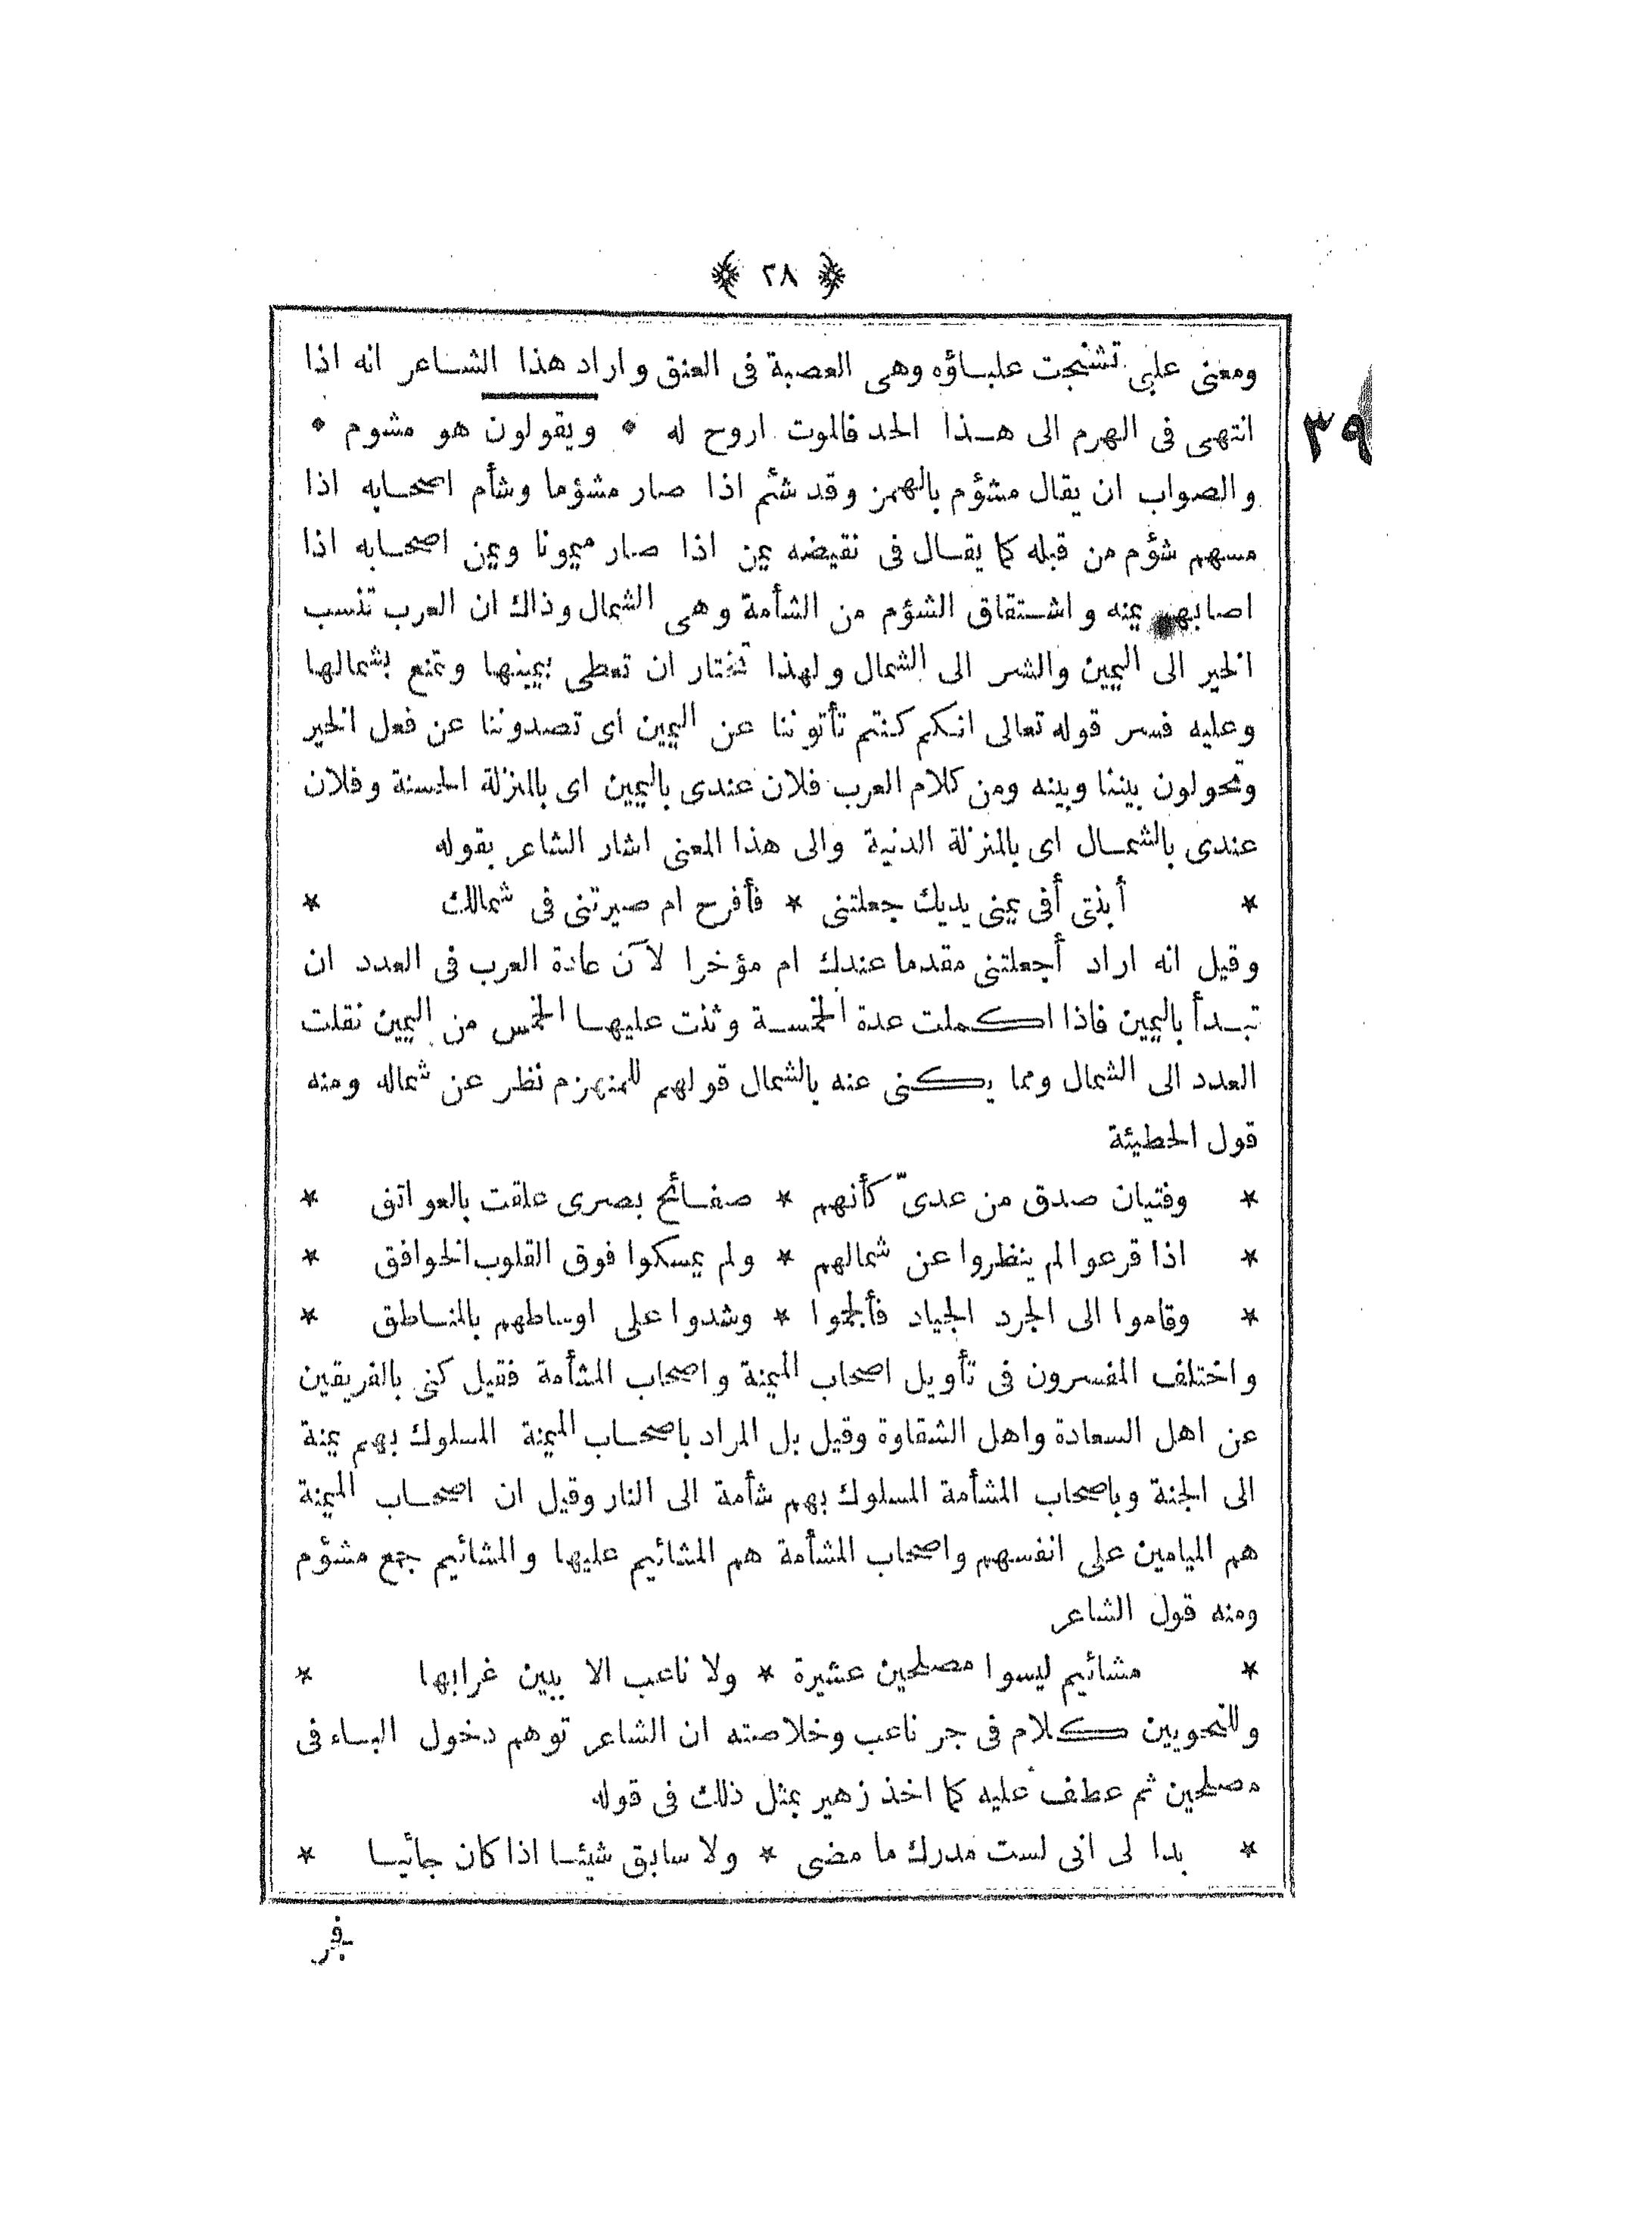 ﴿ ٢٨ ﴾
ومعنى علبى تشنجت علبـاؤه وهى العصبة فى العنق واراد هذا الشـاعر انه اذا
انتهى فى الهرم الى هـذا الحد فالموت اروح له * ويقولون هو مشوم *
٣٩
والصواب ان يقال مشؤم بالهمز وقد شئم اذا صار مشؤما وشأم اصحـابه اذا
مسهم شؤم من قبله كما يقـال فى نقيضه يمن اذا صار ميمونا ويمن اصحـابه اذا
اصابهم يمنه واشـتقاق الشؤم من الشأمة وهى الشمال وذاك ان العرب تنسب
الخير الى اليمين والشر الى الشمال ولهذا تختار ان تعطى بيمينها وتمنع بشمالها
وعليه فسر قوله تعالى انكم كنتم تأتوننا عن اليمين أى تصدوننا عن فعل الخير
وتحولون بيننا وبينه ومن كلام العرب فلان عندى باليمين اى بالمنزلة الحسنة وفلان
عندى بالشمـال اى بالمنزلة الدنية والى هذا المعنى اشار الشاعر بقوله
* أبنتى أفى يمنى يديك جعلتنى * فأفرح ام صيرتنى فى شمالك *
وقيل انه اراد أجعلتنى مقدما عندك ام مؤخرا لآن عادة العرب فى العدد ان
تبـدأ باليمين فاذا اكملت عدة الخمسـة وثنت عليهـا الخمس من اليمين نقلت
العدد الى الشمال ومما يكنى عنه بالشمال قولهم للمنهزم نظر عن شماله ومنه
قول الحطيئة
* وفتيان صدق من عدىّ كأنهم * صفـائح بصرى علقت بالعواتق *
* اذا قرعوا لم ينظروا عن شمالهم * ولم يمسكوا فوق القلوب الخوافق *
* وقاموا الى الجرد الجياد فألجموا * وشدوا على اوساطهم بالمنـاطق *
واختلف المفسرون فى تأويل اصحاب الميمنة واصحاب المشأمة فقيل كنى بالفريقين
عن اهل السعادة واهل الشقاوة وقيل بل المراد باصحـاب الميمنة المسلوك بهم يمنة
الى الجنة وباصحاب المشأمة المسلوك بهم شأمة الى النار وقيل ان اصحـاب الميمنة
هم الميامين على انفسهم واصحاب المشأمة هم المشائيم عليها والمشائيم جمع مشؤم
ومنه قول الشاعر
* مشائيم ليسوا مصلحين عشيرة * ولا ناعب الا ببين غرابها *
وللنحويين كلام فى جر ناعب وخلاصته ان الشاعر توهم دخول البـاء فى
مصلحين ثم عطف عليه كما اخذ زهير بمثل ذلك فى قوله
* بدا لى انى لست مدرك ما مضى * ولا سابق شيئـا اذا كان جائيـا *
فجر